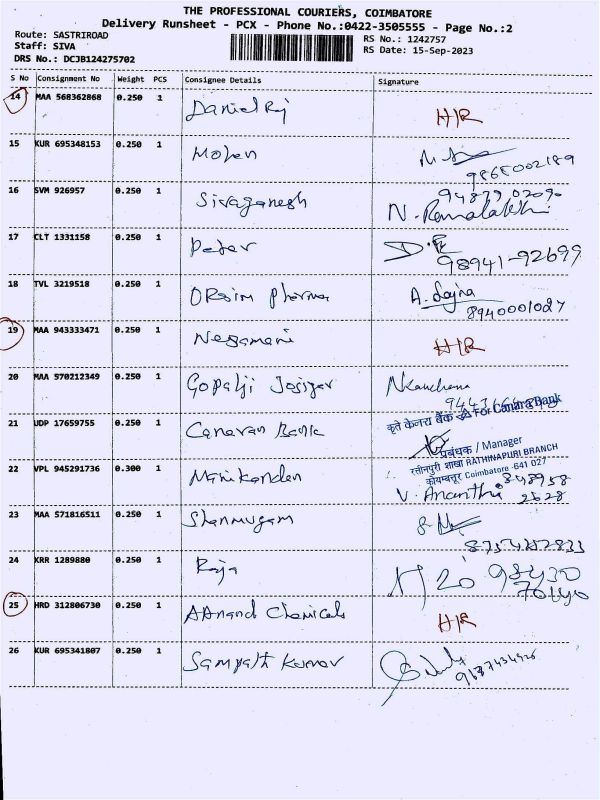 THE PROFESSIONAL COURIERS, COIMBATORE
Delivery Runsheet - PCX - Phone No.:0422-3505555 - Page No.:2
Route: SASTRIROAD
RS No.: 1242757
Staff: SIVA
RS Date: 15-Sep-2023
DRS No.: DCJB124275702
S No Consignment No Weight PCS Consignee Details Signature
14 MAA 568362868 0.250 1 Daniel Raj H/R
15 KUR 695348153 0.250 1 Mohan
9865002189
16 SVM 926957 0.250 1 Sivaganesh
N. Ramalakshmi
17 CLT 1331158 0.250 1 Peter
98941-92699
18 TVL 3219518 0.250 1 Pharma A. Sajna
8940001027
19 MAA 943333471 0.250 1 Nesamani H/R
20 MAA 570212349 0.250 1 Gopalji Kanchana
21 UDP 17659755 0.250 1 Canaran Bank
कृते केनरा बैंक For Canara Bank
प्रबंधक / Manager
रत्तीनपुरी शाखा RATHINAPURI BRANCH
कोयम्बत्तूर Coimbatore -641 027
22 VPL 945291736 0.300 1 Manikandan V. Ananthi 848958
2628
23 MAA 571816511 0.250 1 Shanmugam
24 KRR 1289880 0.250 1 Raja
25 HRD 312806730 0.250 1 AAnand Chemicals H/R
26 KUR 695341807 0.250 1 Sampath Kumar